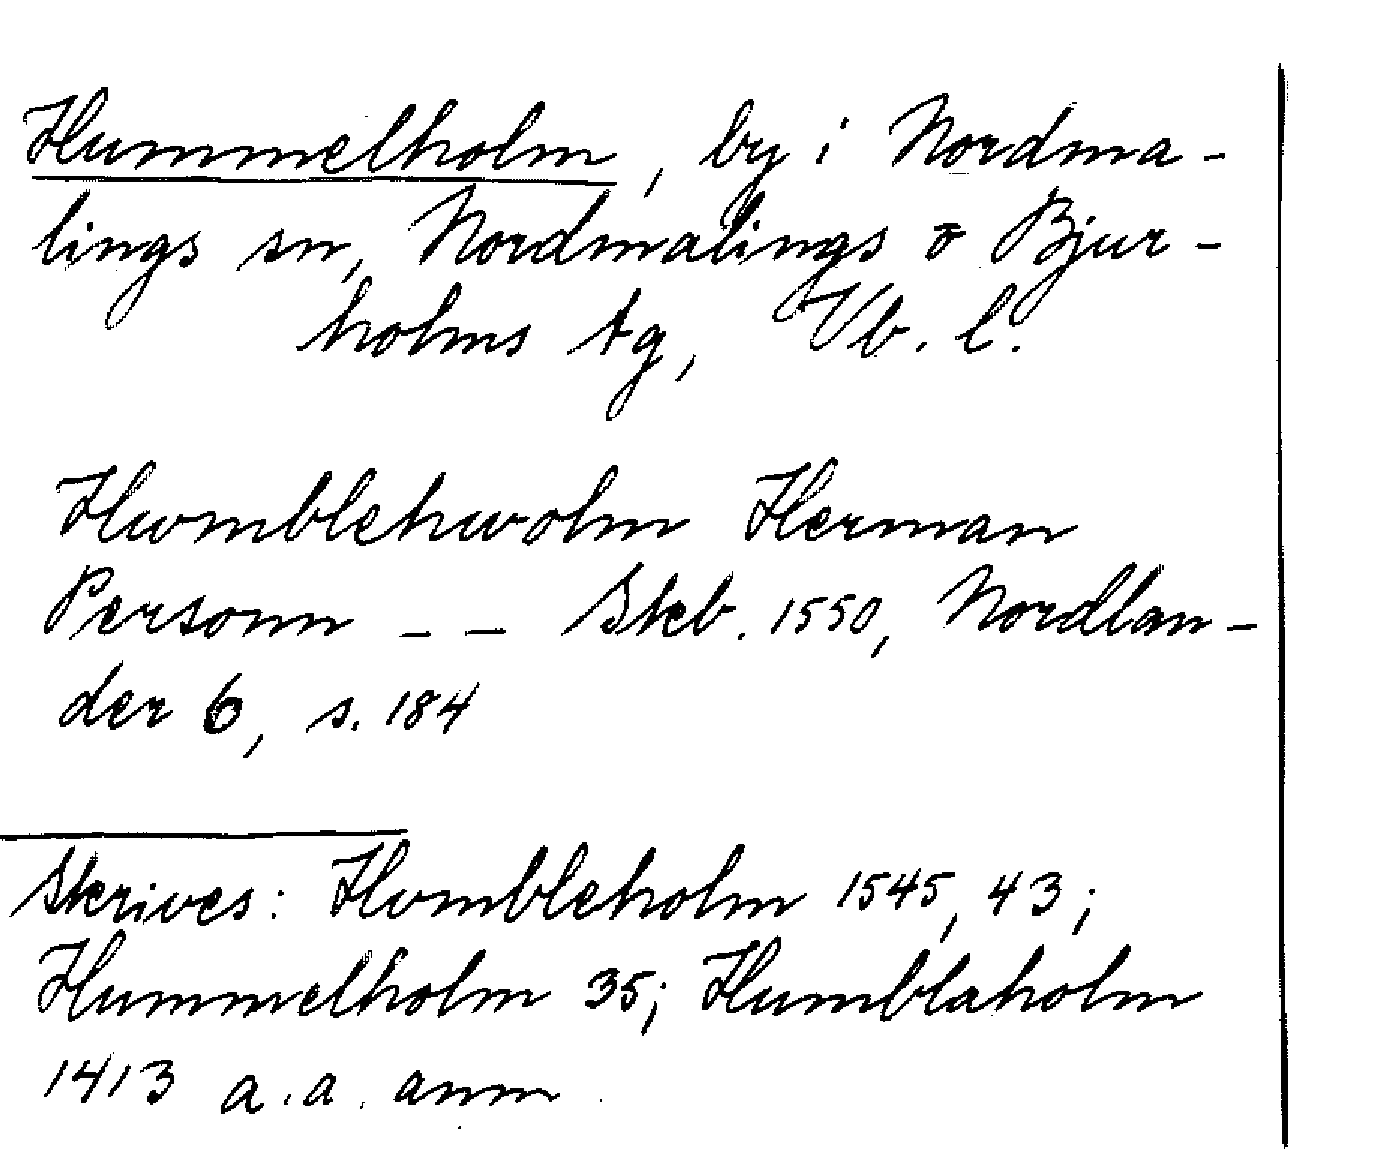 Hummelholm, by i Nordma-
lings sn, Nordmalings o Bjur-
holms tg, Vb. l.
Hwmblehwolm Herman
Personn -- Skb. 1550, Nordlan-
der 6, s. 184
Skrives: Hvmbleholm 1545, 43;
Hummelholm 35; Humblaholm
1413 a.a. anm